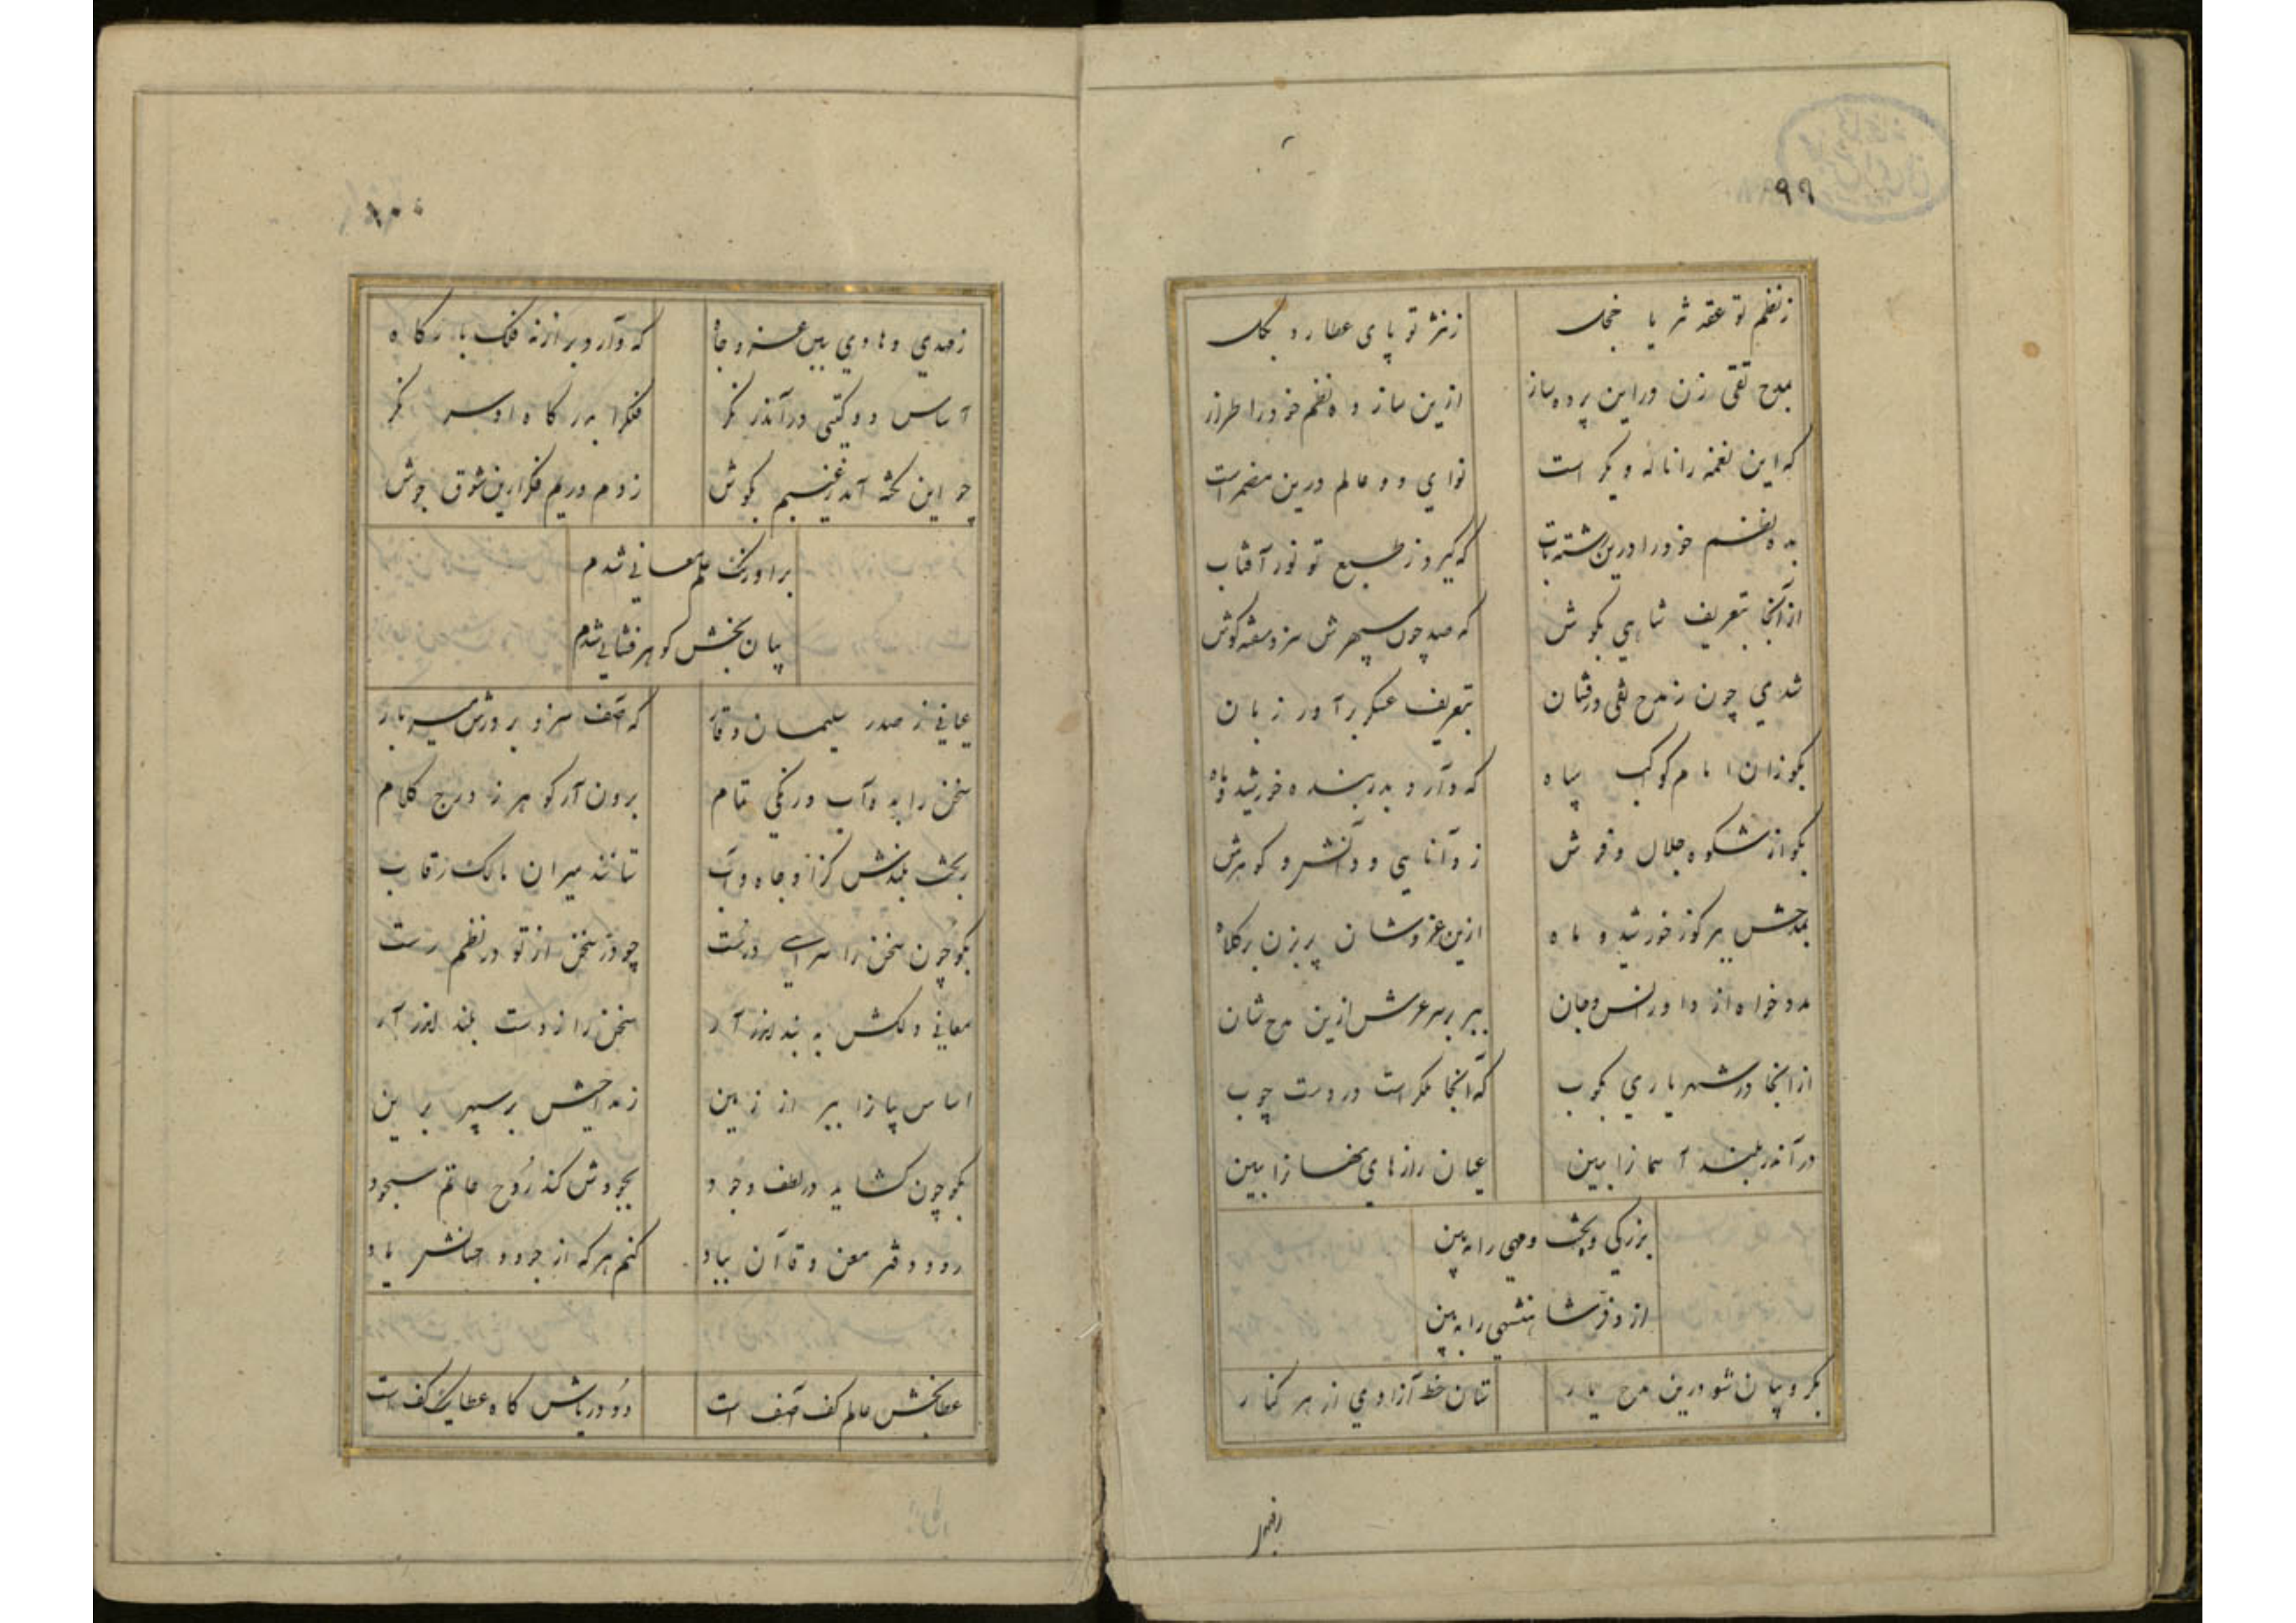 ۹۹
ز نظم تو عقد ثریا خجل ز نثر تو پای عطارد بگل
بمدح تقی زن در این پرده ساز ازین ساز ده نظم خود را طراز
که این نغمه را ناله دیگر است نوای دو عالم درین مضمر است
بده نظم خود را درین رشته تاب که گیرد ز طبع تو نور آفتاب
از آنجا بتعریف شاهی بکوش که صد چون سپهرش سزد حقه کوش
شدی چون ز مدح تقی درفشان بتعریف عسکر برآور زبان
بگو زان امام کواکب سپاه که دارد بدر بنده خورشید و ماه
بگو از شکوه جلال و فرش ز دانایی و دانش و گوهرش
بمدحش ببر گوز خورشید و ماه ازین عز و شان پر بزن بر کلاه
مدد خواه از داور انس و جان ببر بر سر عرش ازین مدح شان
از اینجا در شهریاری بکوب که آنجا ملک راست در دست چوب
در آندر بلند آسمانرا ببین عیان رازهای نهانرا ببین
بزرگی و بخت و مهی را ببین
از و فر شاهنشهی را ببین
بگرد بیان شو درین مدح یار ستان خط آزادی از هر کنار
ز مهدی
۱۰۰
ز مهدی و هادی ببین عز و جاه که دارد بر از نه فلک بارگاه
اساس دو گیتی در آندر نگر فلک را بدرگاه او سر نگر
چو این نکته آمد ز غیبم بگوش زد از مدح دریای فکرم ازین شوق جوش
بر اورنگ علم معانی شدم
بیان بخش گوهر فشانی شدم
عیانی ز صدر سلیمان وقار که آصف سزد بر درش میر بار
سخن را بده آب و رنگی تمام برون آر گوهر ز درج کلام
ز بخت بلندش کز او جاه و آب ستانند میران مالک رقاب
بگو چون سخن را سرایی درست چو در سخن از تو در نظم رست
معانی دلکش به بند اندر آر سخن را ز دست بلند اندر آر
اساس بیانرا ببر از زمین ز مداحیش بر سپهر برین
بگو چون گشاید در لطف و جود بجودش کند روح حاتم سجود
رود دفتر معن و قاآن بباد کنم هر که از جود و احسانش یاد
عطا بخش عالم کف آصف است دو دریاش گاه عطا یک کف است